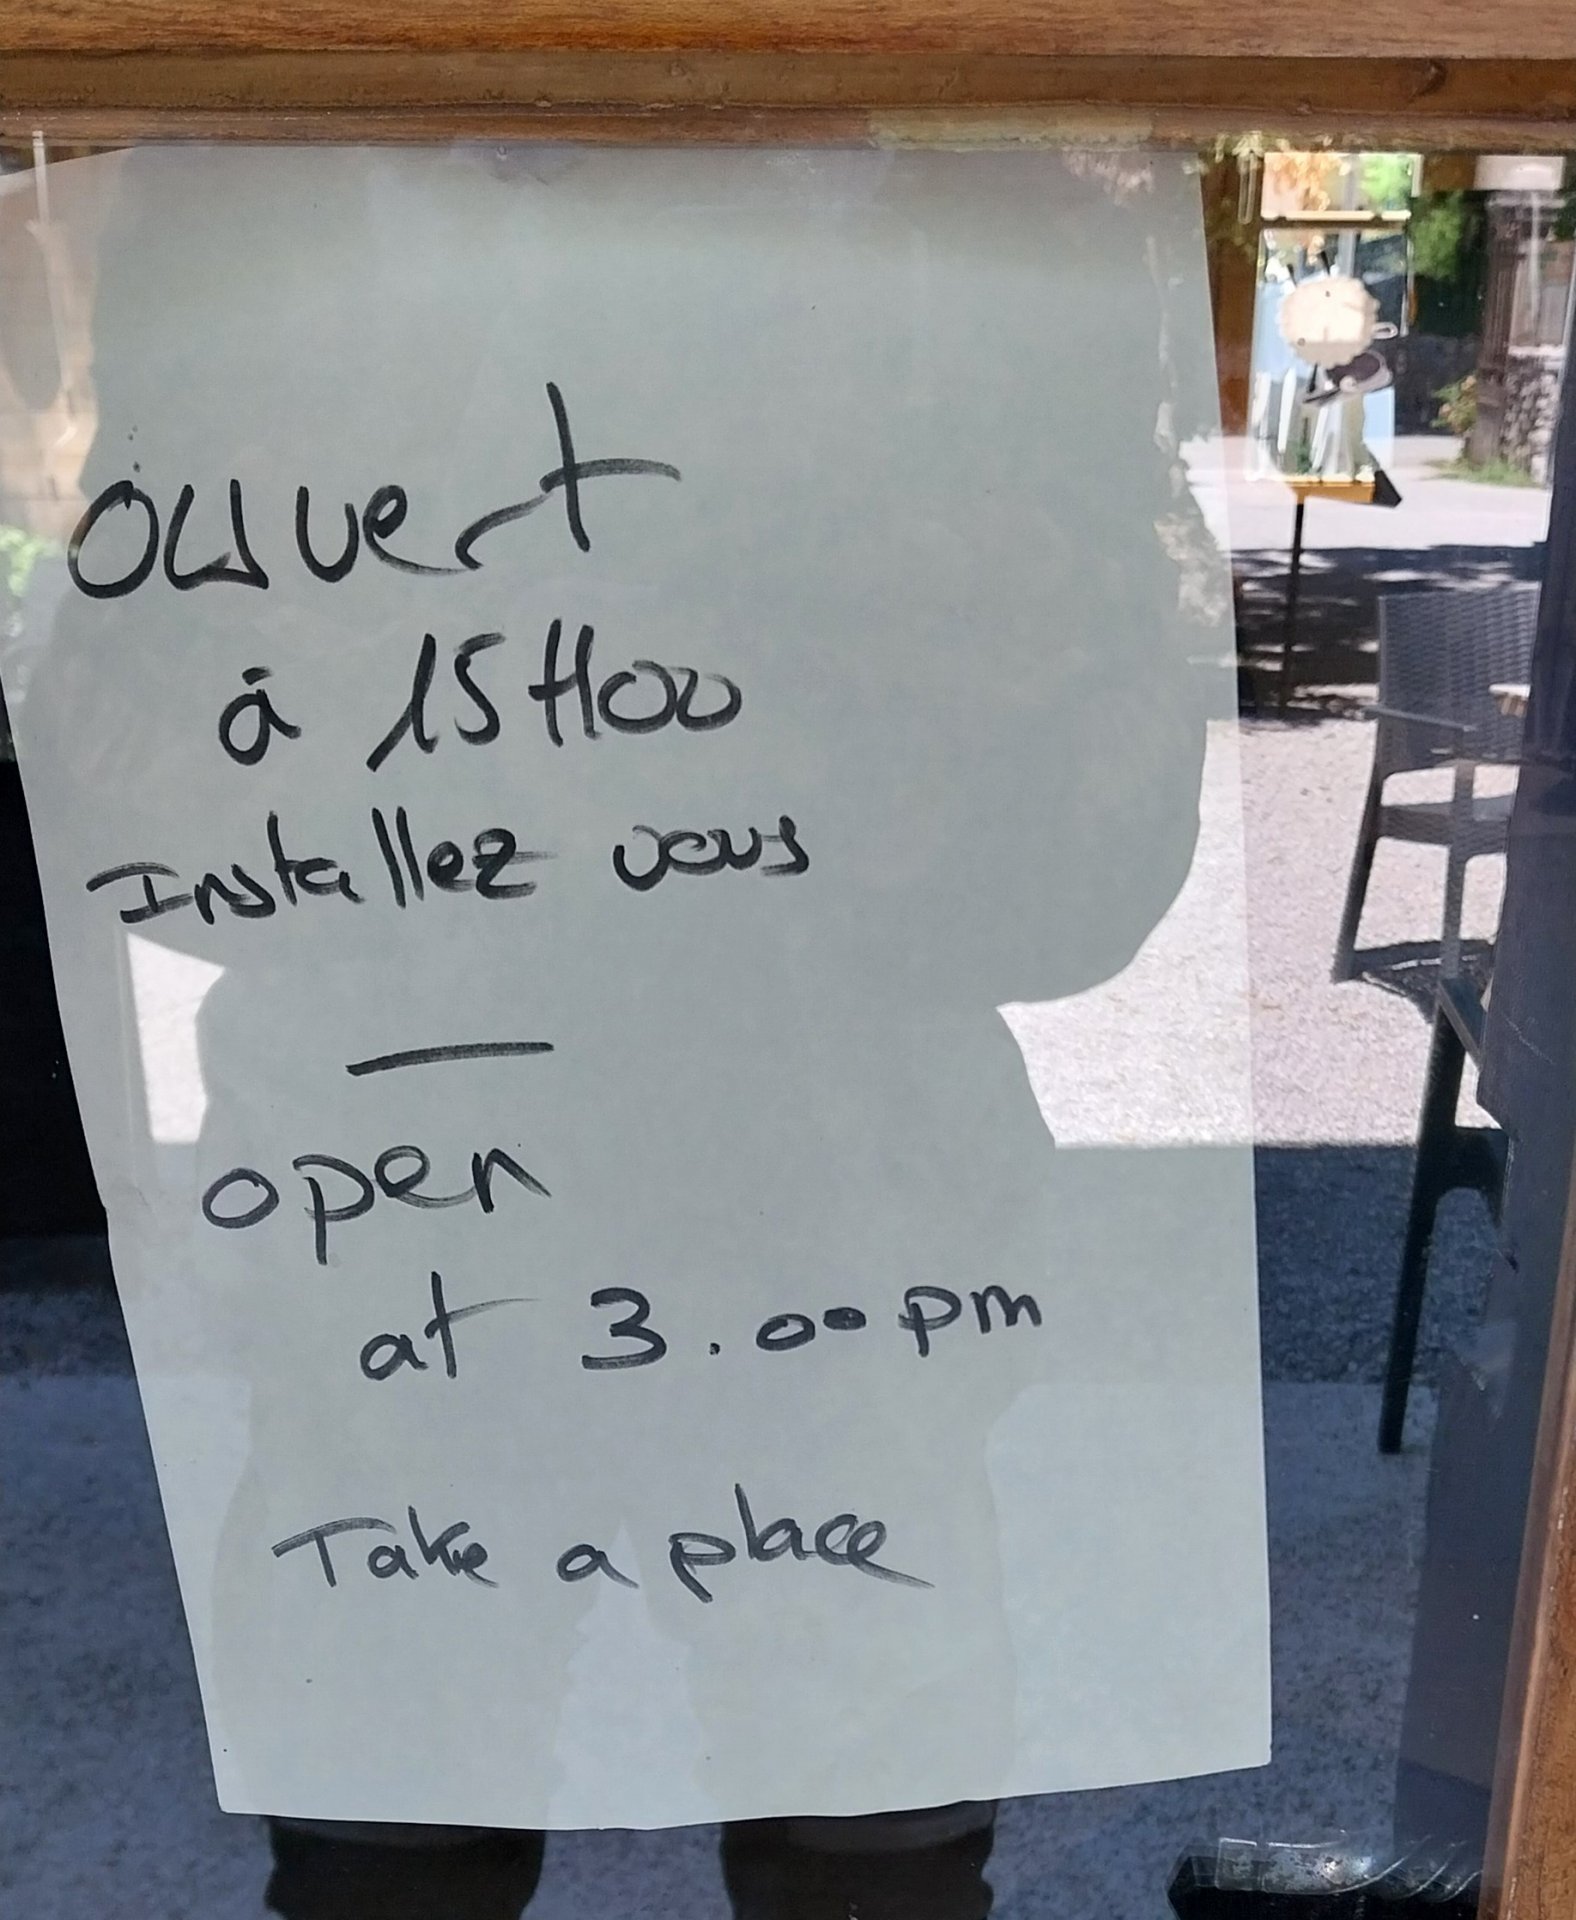 Ouvert
à 15H00
Installez vous
—
open
at 3.00 pm
Take a place